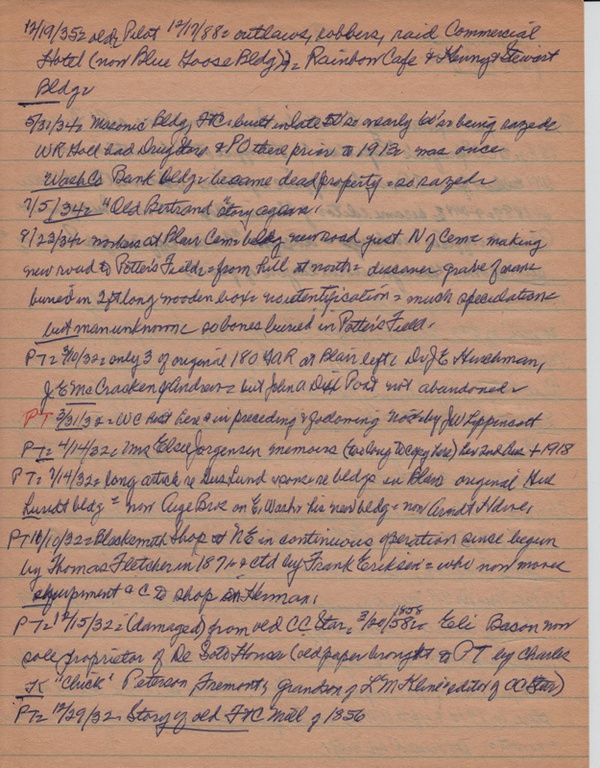 12/19/35= old Pilot 12/17/88= outlaws, robbers, raid Commercial
Hotel (now Blue Goose Bldg) = Rainbow Cafe & Stewart
Bldg=
5/31/34= Masonic Bldg, FtC, built in late 50's or early 60's= being razed=
WR Hall had Drug Store & PO there prior to 1913= was once
WashCo Bank bldg= became dead property= so razed=
7/5/34= "Old Bertrand" story again.
8/23/34= workers at Blair Cem= bldg new road just N of Cem= making
new road to Potter's Field= from hill at north= discover grave of man=
buried in 2 ft long wooden box= no identification= much speculation=
but man unknown= so bones buried in Potter's Field.
PT= 3/10/32= only 3 of original 180 GAR at Blair left= Dr J E Hinchman,
J E McCracken & Andrew= but John A Dix Post not abandoned=
PT 3/31/32= WC in preceding & following Notes by JW Lippencott
PT= 4/14/32= Mrs Elsie Jorgensen memoirs (too long to copy here) her 2nd hus + 1918
PT= 7/14/32= long article re Gus Lundt & re bldgs in Blair original Gus
Lundt bldg = now Bros on E, Wash= his new bldg= now Arndt Hdwe.
PT 11/10/32= Blacksmith Shop at NE in continuous operation since begun
by Thomas Fletcher in 1871= & ctd by Frank Eriksen= who now moves
equipment &C to shop in Herman.
PT= 12/15/32= (damaged) from old CC Star, 3/20/1858= Eli Bacon now
sole proprietor of De Soto House (old paper brought to PT by Charles
K "Chick" Peterson Fremont, grandson of L M Kline= editor of CC Star)
PT= 12/29/32= Story of old FtC Mill of 1856